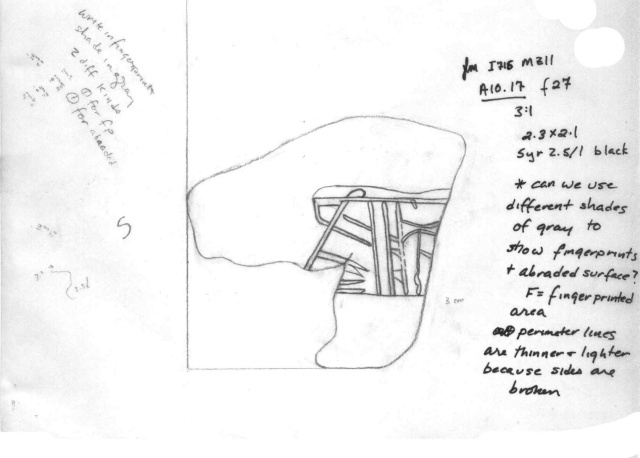 write in fingerprints
shade in gray
2 diff kinds
① for fp
② for abraded
I715 MZ11
A10.17 f27
3:1
2.3x2.1
5yr 2.5/1 black
* can we use
different shades
of gray to
show fingerprints
+ abraded surface?
F = fingerprinted
area
perimeter lines
are thinner + lighter
because sides are
broken
3 cm